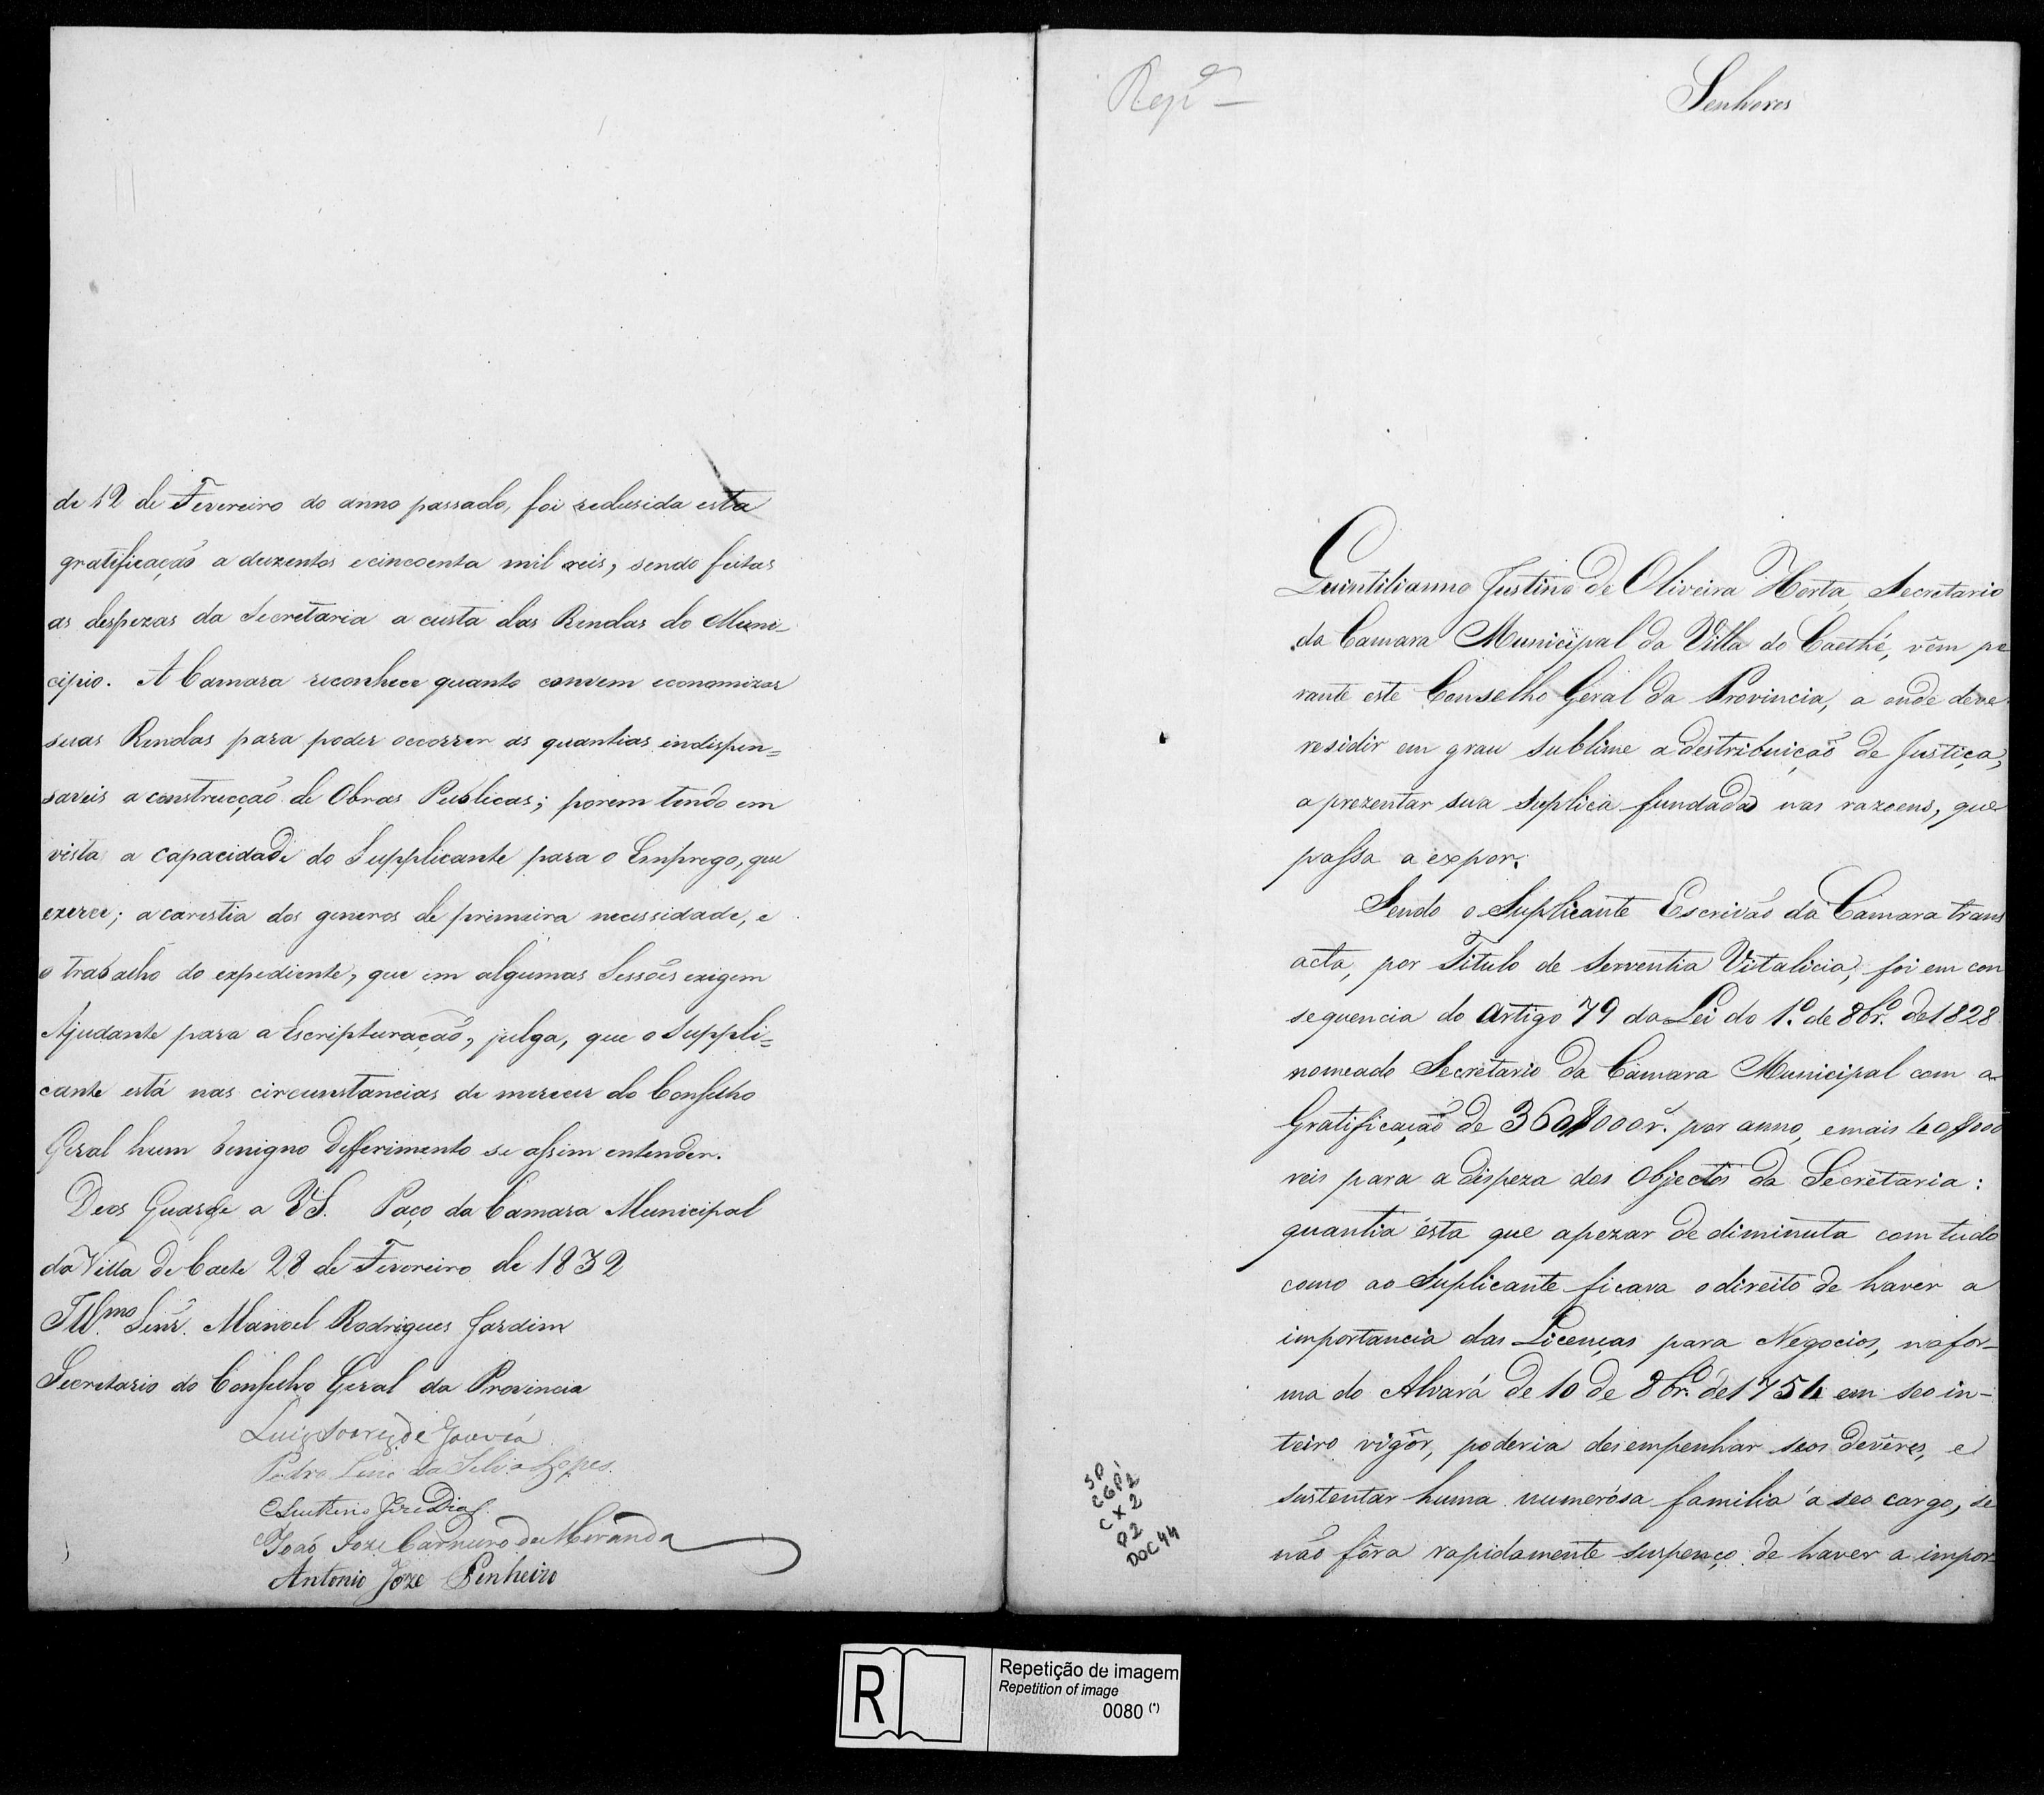 de 12 de Fevereiro do anno passado, foi redusida esta
gratificação a duzentos e cincoenta mil reis, sendo feitas
as despezas da Secretaria a custa das Rendas do Muni-
cipio. A Camara reconhece quanto convem economizar
suas Rendas para poder occorrer as quantias indispen=
saveis a construcção de Obras Publicas; porem tendo em
vista a capacidade do Supplicante para o Emprego, que
exerce; a carestia dos generos de primeira necessidade, e
o trabalho do expediente, que em algumas Sessões exigem
Ajudante para a Escripturação, julga, que o Suppli=
cante está nas circunstancias de merecer do Conselho
Geral hum benigno Defferimento se assim entender.
Deos Guarde a VS. Paço da Camara Municipal
da Villa de Caete 28 de Fevereiro de 1832
Illmo. Senr. Manoel Rodrigues Jardim
Secretario do Conselho Geral da Provincia
Luiz Soares de Gouvêa
Pedro Lino da Silva Lopes.
Eleuterio Joze Dias
João Joze Carneiro de Miranda
Antonio Joze Penheiro
Senhores
Quintilianno Justino de Oliveira Horta, Secretario
da Camara Municipal da Villa do Caethé, vêm pe
rante este Conselho Geral da Provincia, a onde deve
residir em grau sublime a destribuição de Justiça,
a prezentar sua suplica fundada nas razoens, que
passa a expor.
Sendo o Suplicante Escrivão da Camara trans
acta, por Titulo de Serventia Vitalicia, foi em con
sequencia do Artigo 79 da Lei do 1.º de 8br.º de 1828
nomeado Secretario da Camara Municipal com a
Gratificação de 360$000 r.s por anno, e mais 40$000
reis para a dispeza dos Objectos da Secretaria:
quantia ésta que apezar de diminuta com tudo
como ao Suplicante ficava o direito de haver a
importancia das Licenças para Negocios, na for-
ma do Alvará de 10 de 8br.º de 1754 em seo in-
teiro vigôr, poderia desempenhar seos devêres, e
sustentar huma numerósa familia á seo cargo, se
não fôra rapidamente suspenço de haver a impor
SP
CGP1
CX 2
P2
DOC 44
R
Repetição de imagem
Repetition of image
0080 (*)